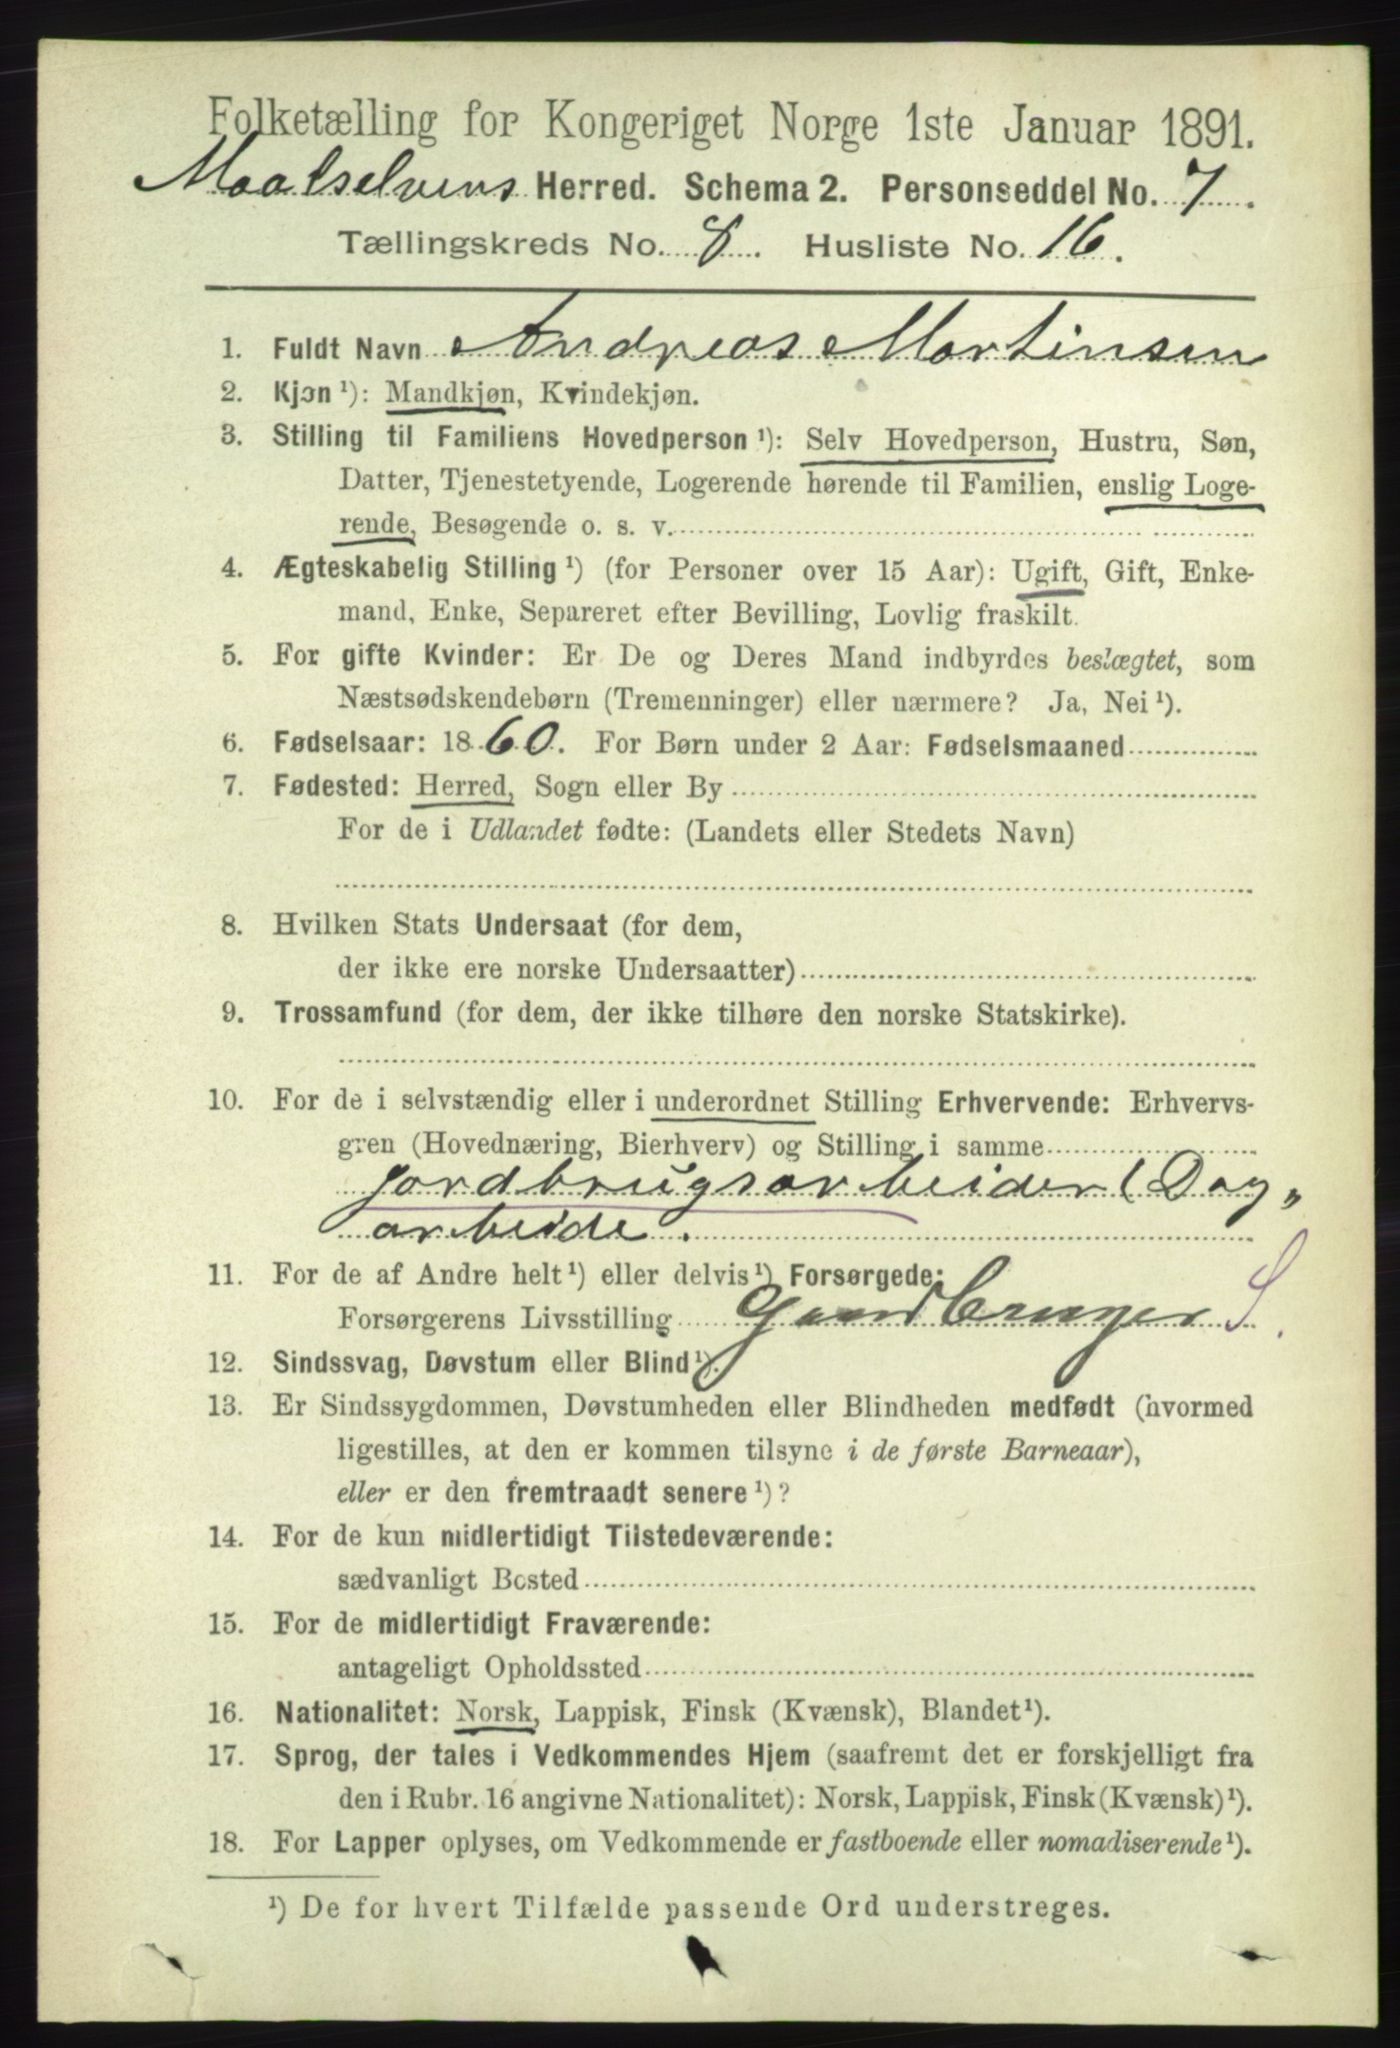 Folketælling for Kongeriget Norge 1ste Januar 1891.
Maalselvens Herred. Schema 2. Personseddel No. 7.
Tællingskreds No. 8. Husliste No. 16.
1. Fuldt Navn Andreas Martinsen
2. Kjøn ¹): Mandkjøn, Kvindekjøn.
3. Stilling til Familiens Hovedperson ¹): Selv Hovedperson, Hustru, Søn,
Datter, Tjenestetyende, Logerende hørende til Familien, enslig Loge-
rende, Besøgende o. s. v.
4. Ægteskabelig Stilling ¹) (for Personer over 15 Aar): Ugift, Gift, Enke-
mand, Enke, Separeret efter Bevilling, Lovlig fraskilt.
5. For gifte Kvinder: Er De og Deres Mand indbyrdes beslægtet, som
Næstsødskendebørn (Tremenninger) eller nærmere? Ja, Nei ¹).
6. Fødselsaar: 1860. For Børn under 2 Aar: Fødselsmaaned
7. Fødested: Herred, Sogn eller By
For de i Udlandet fødte: (Landets eller Stedets Navn)
8. Hvilken Stats Undersaat (for dem,
der ikke ere norske Undersaatter)
9. Trossamfund (for dem, der ikke tilhøre den norske Statskirke).
10. For de i selvstændig eller i underordnet Stilling Erhvervende: Erhvervs-
gren (Hovednæring, Bierhverv) og Stilling i samme
Jordbrugsarbeider (Dag„
arbeide.
11. For de af Andre helt ¹) eller delvis ¹) Forsørgede:
Forsørgerens Livsstilling Gaardbruger S.
12. Sindssvag, Døvstum eller Blind ¹).
13. Er Sindssygdommen, Døvstumheden eller Blindheden medfødt (hvormed
ligestilles, at den er kommen tilsyne i de første Barneaar),
eller er den fremtraadt senere ¹)?
14. For de kun midlertidigt Tilstedeværende:
sædvanligt Bosted
15. For de midlertidigt Fraværende:
antageligt Opholdssted
16. Nationalitet: Norsk, Lappisk, Finsk (Kvænsk), Blandet ¹).
17. Sprog, der tales i Vedkommendes Hjem (saafremt det er forskjelligt fra
den i Rubr. 16 angivne Nationalitet): Norsk, Lappisk, Finsk (Kvænsk) ¹).
18. For Lapper oplyses, om Vedkommende er fastboende eller nomadiserende ¹).
¹) De for hvert Tilfælde passende Ord understreges.